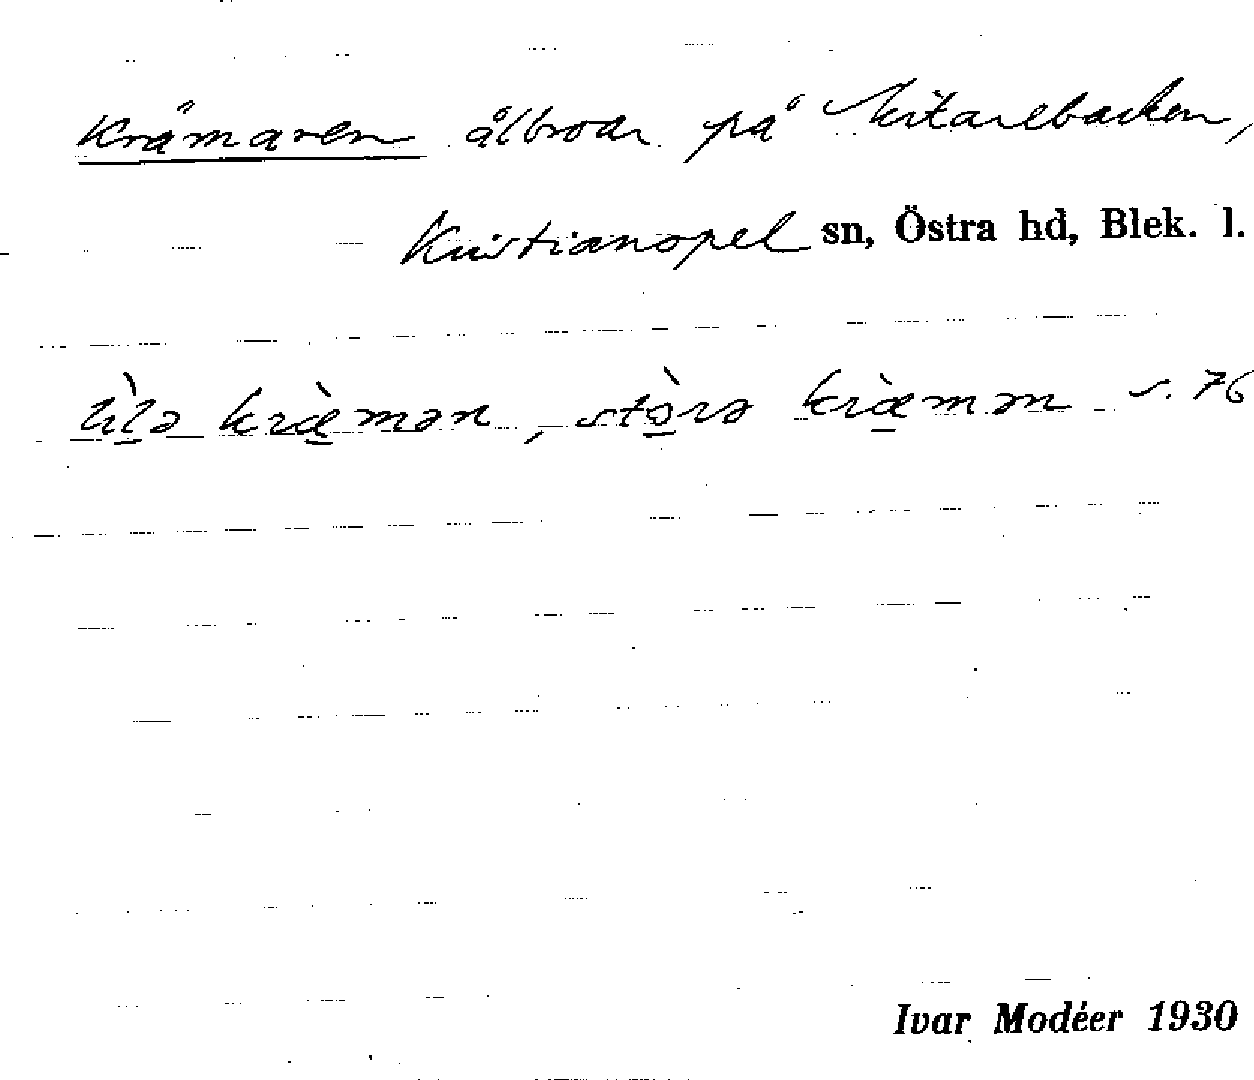 Kråmaren ålbrodar på Kitarebacken,
Kristianopel sn, Östra hd, Blek. l.
lìlə kræ̀mən, stòrə kræ̀mən s. 76
Ivar Modéer 1930